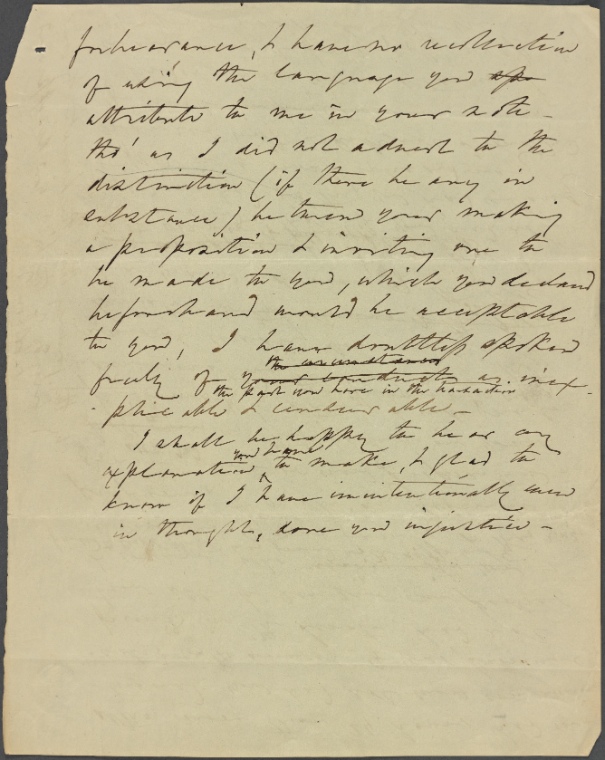 forbearance, & have no recollection
of using the language you
attribute to me in your note -
tho' as I did not advert to the
distinction (if there be any in
substance) between your making
a proposition & inviting one to
be made to you, which you declared
beforehand would be acceptable
to you, I have doubtless spoken
the circumstances
freely of your conduct as inex-
the part you bore in the transaction
plicable & censurable -
I shall be happy to hear any
you have
explanation to make, & glad to
know if I have unintentionally even
in thought, done you injustice -